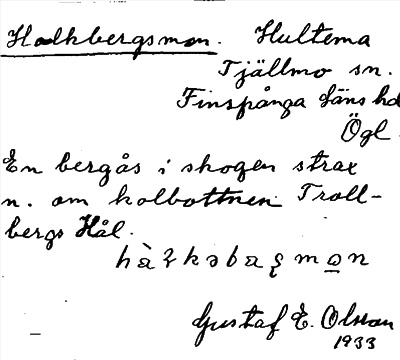 Halkbergsmon. Hultema
Tjällmo sn.
Finspånga läns hd
Ögl.
En bergås i skogen strax
n. om kolbottnen Troll-
bergs Hål.
Gustaf E. Olsson
1933